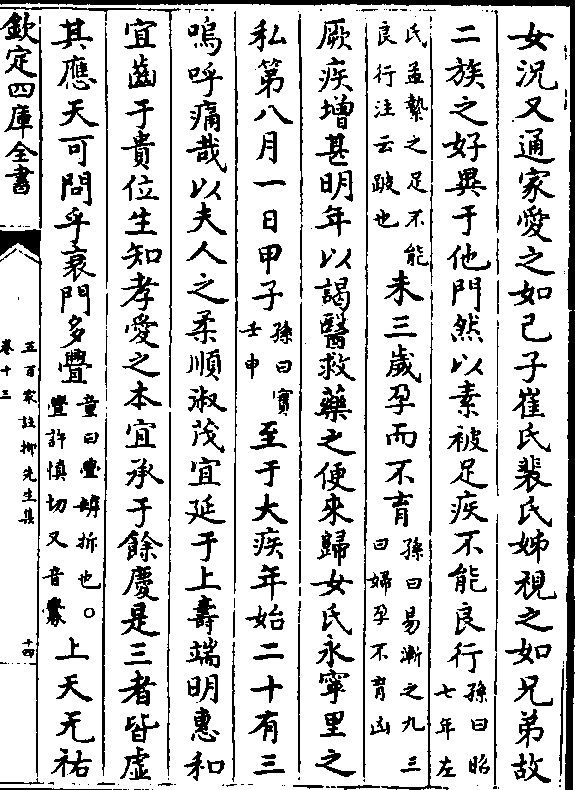 女況又通家愛之如己子崔氏裴氏姊視之如兄弟故
二族之好異于他門然以素被足疾不能良行孫曰昭七年左
氏孟縶之足不能良行注云跛也未三歲孕而不育孫曰易漸之九三曰婦孕不育凶
厥疾增甚明年以謁醫救藥之便來歸女氏永寧里之
私第八月一日甲子孫曰實壬申至于大疾年始二十有三
嗚呼痛哉以夫人之柔順淑茂宜延于上壽端明惠和
宜齒于貴位生知孝愛之本宜承于餘慶是三者皆虛
其應天可問乎衰門多舋童曰舋罅拆也○舋許慎切又音釁上天无祐
欽定四庫全書
五百家註栁先生集
卷十三
十四